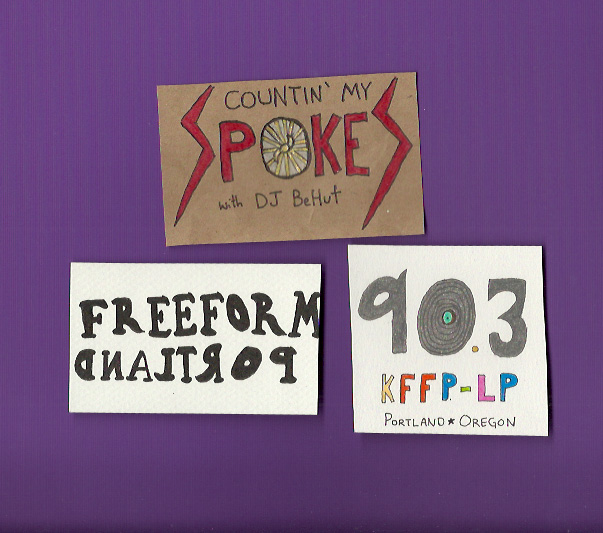 COUNTIN' MY
SPOKES
with DJ BeHut
FREEFORM
PORTLAND
90.3
KFFP-LP
PORTLAND★OREGON